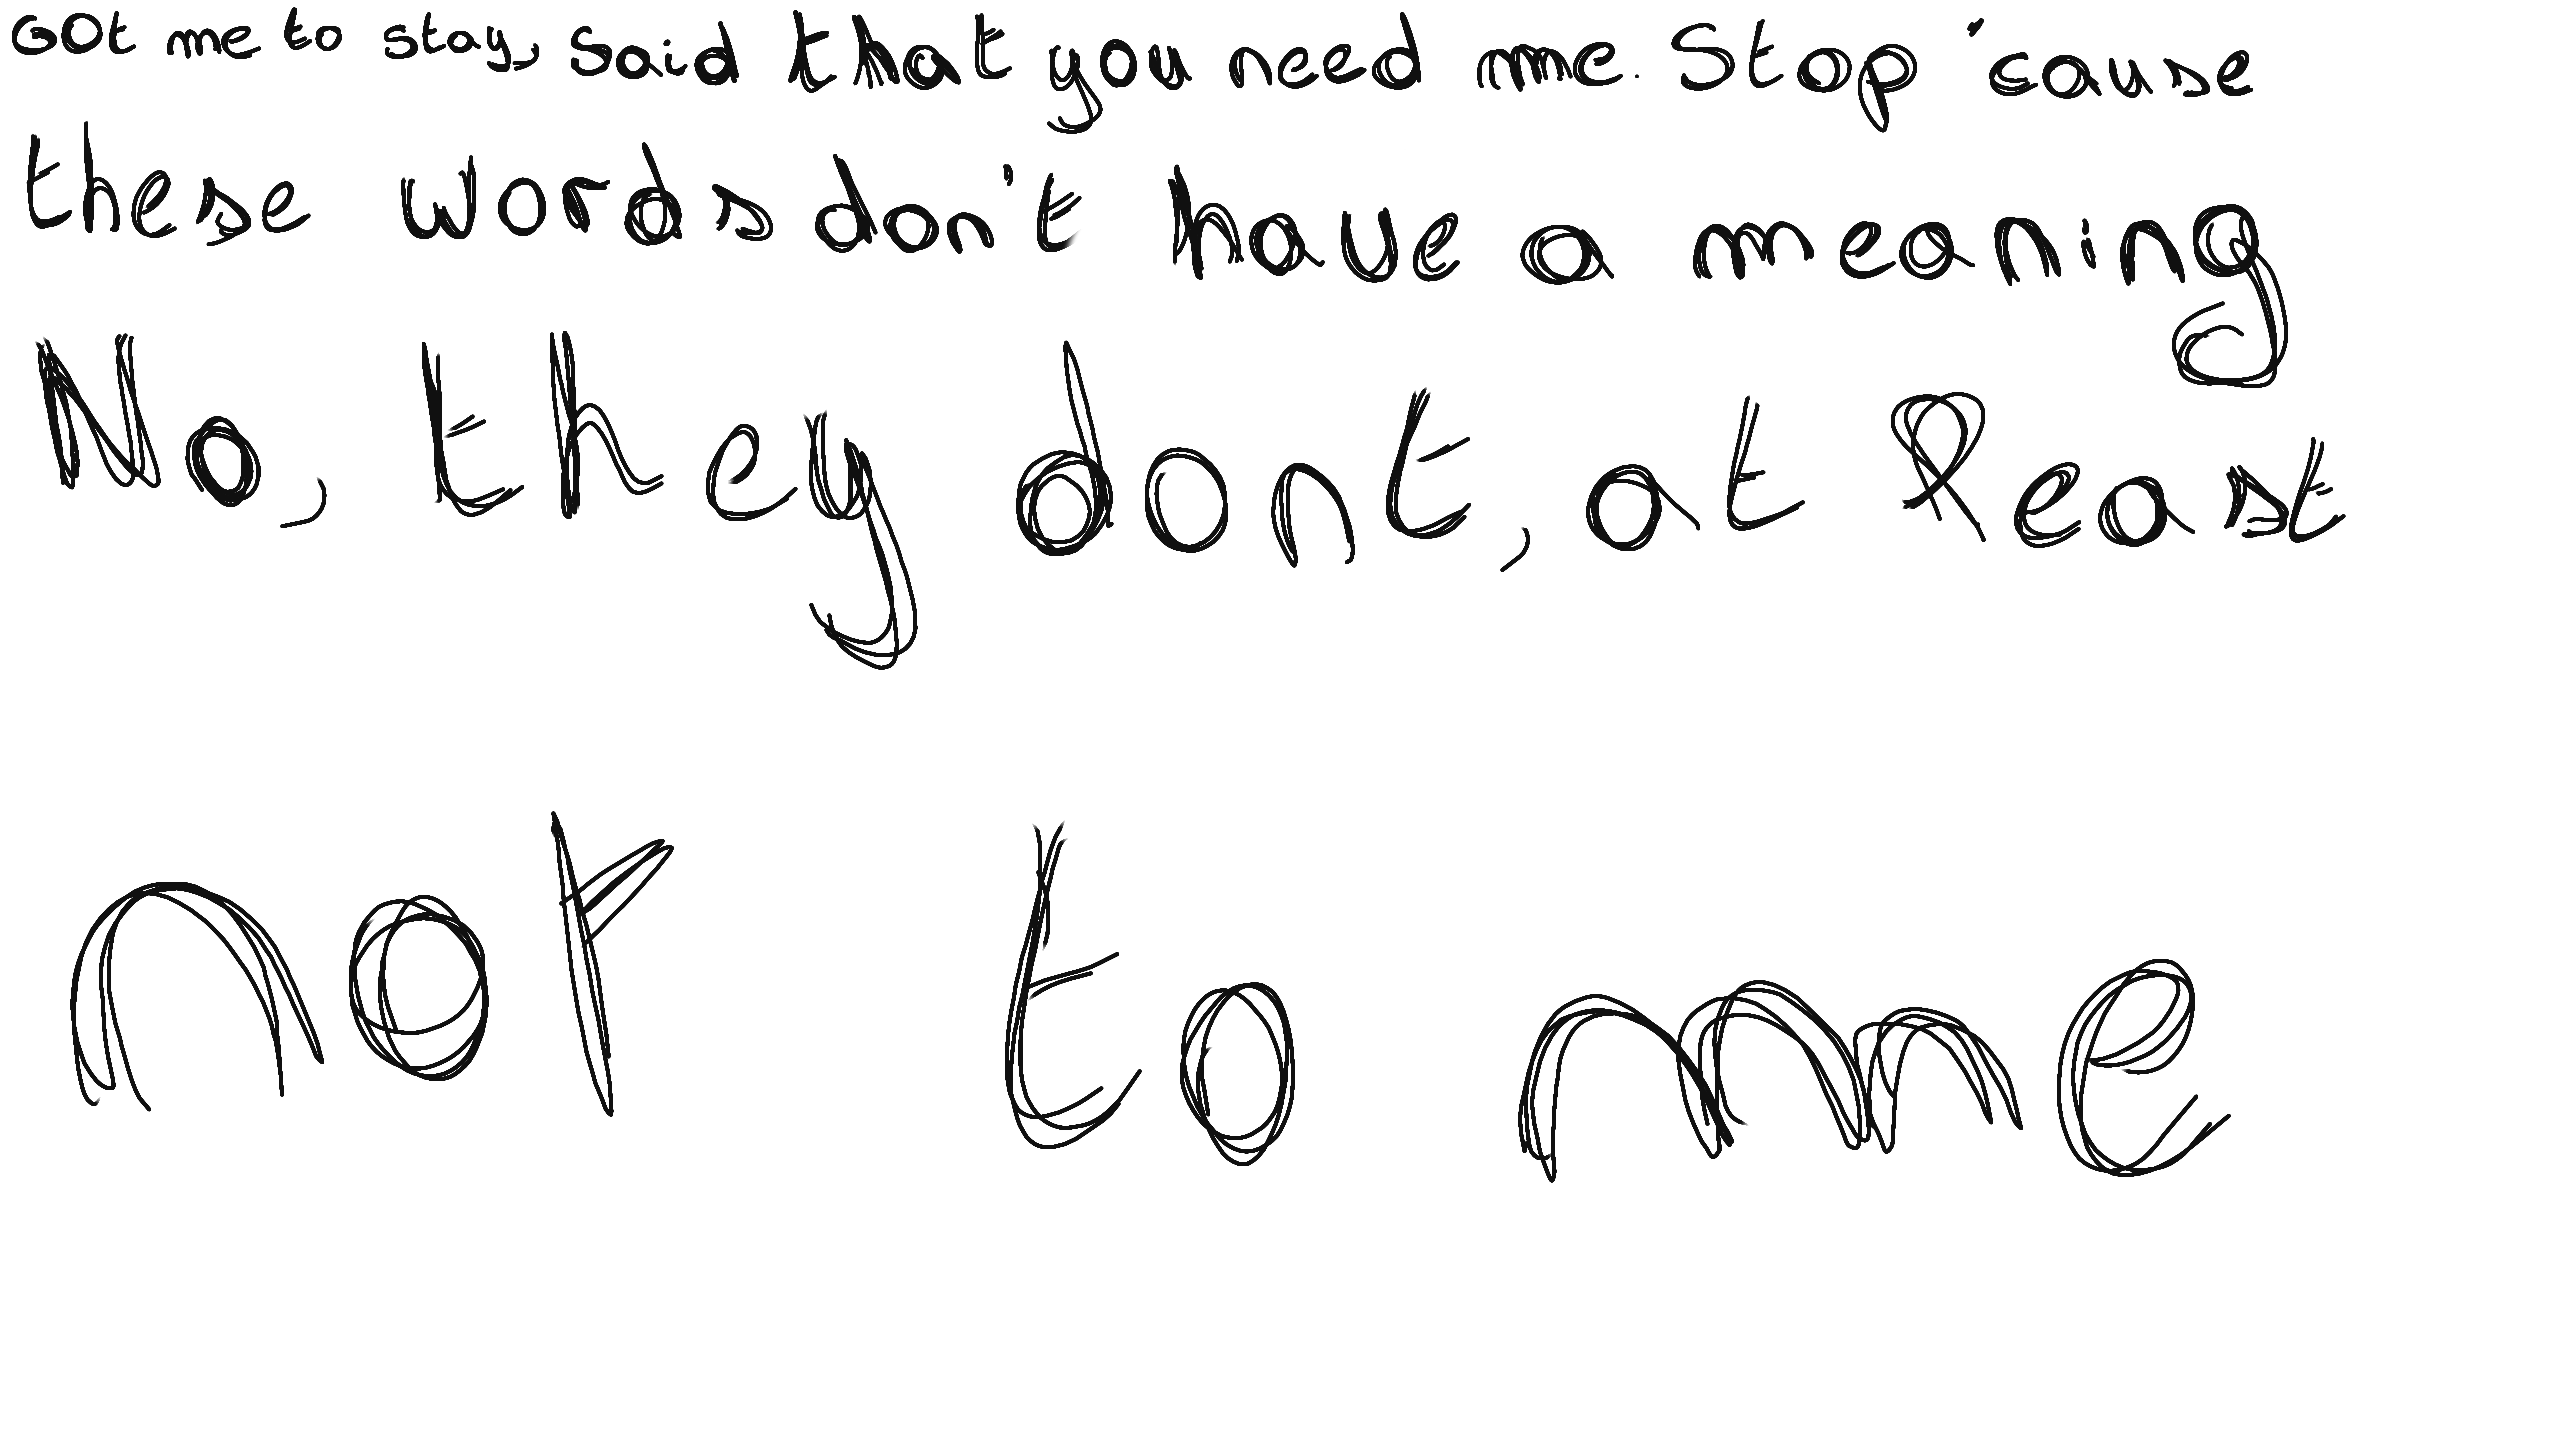 Got me to stay, said that you need me. Stop 'cause
these words don't have a meaning
No, they dont, at least
not to me